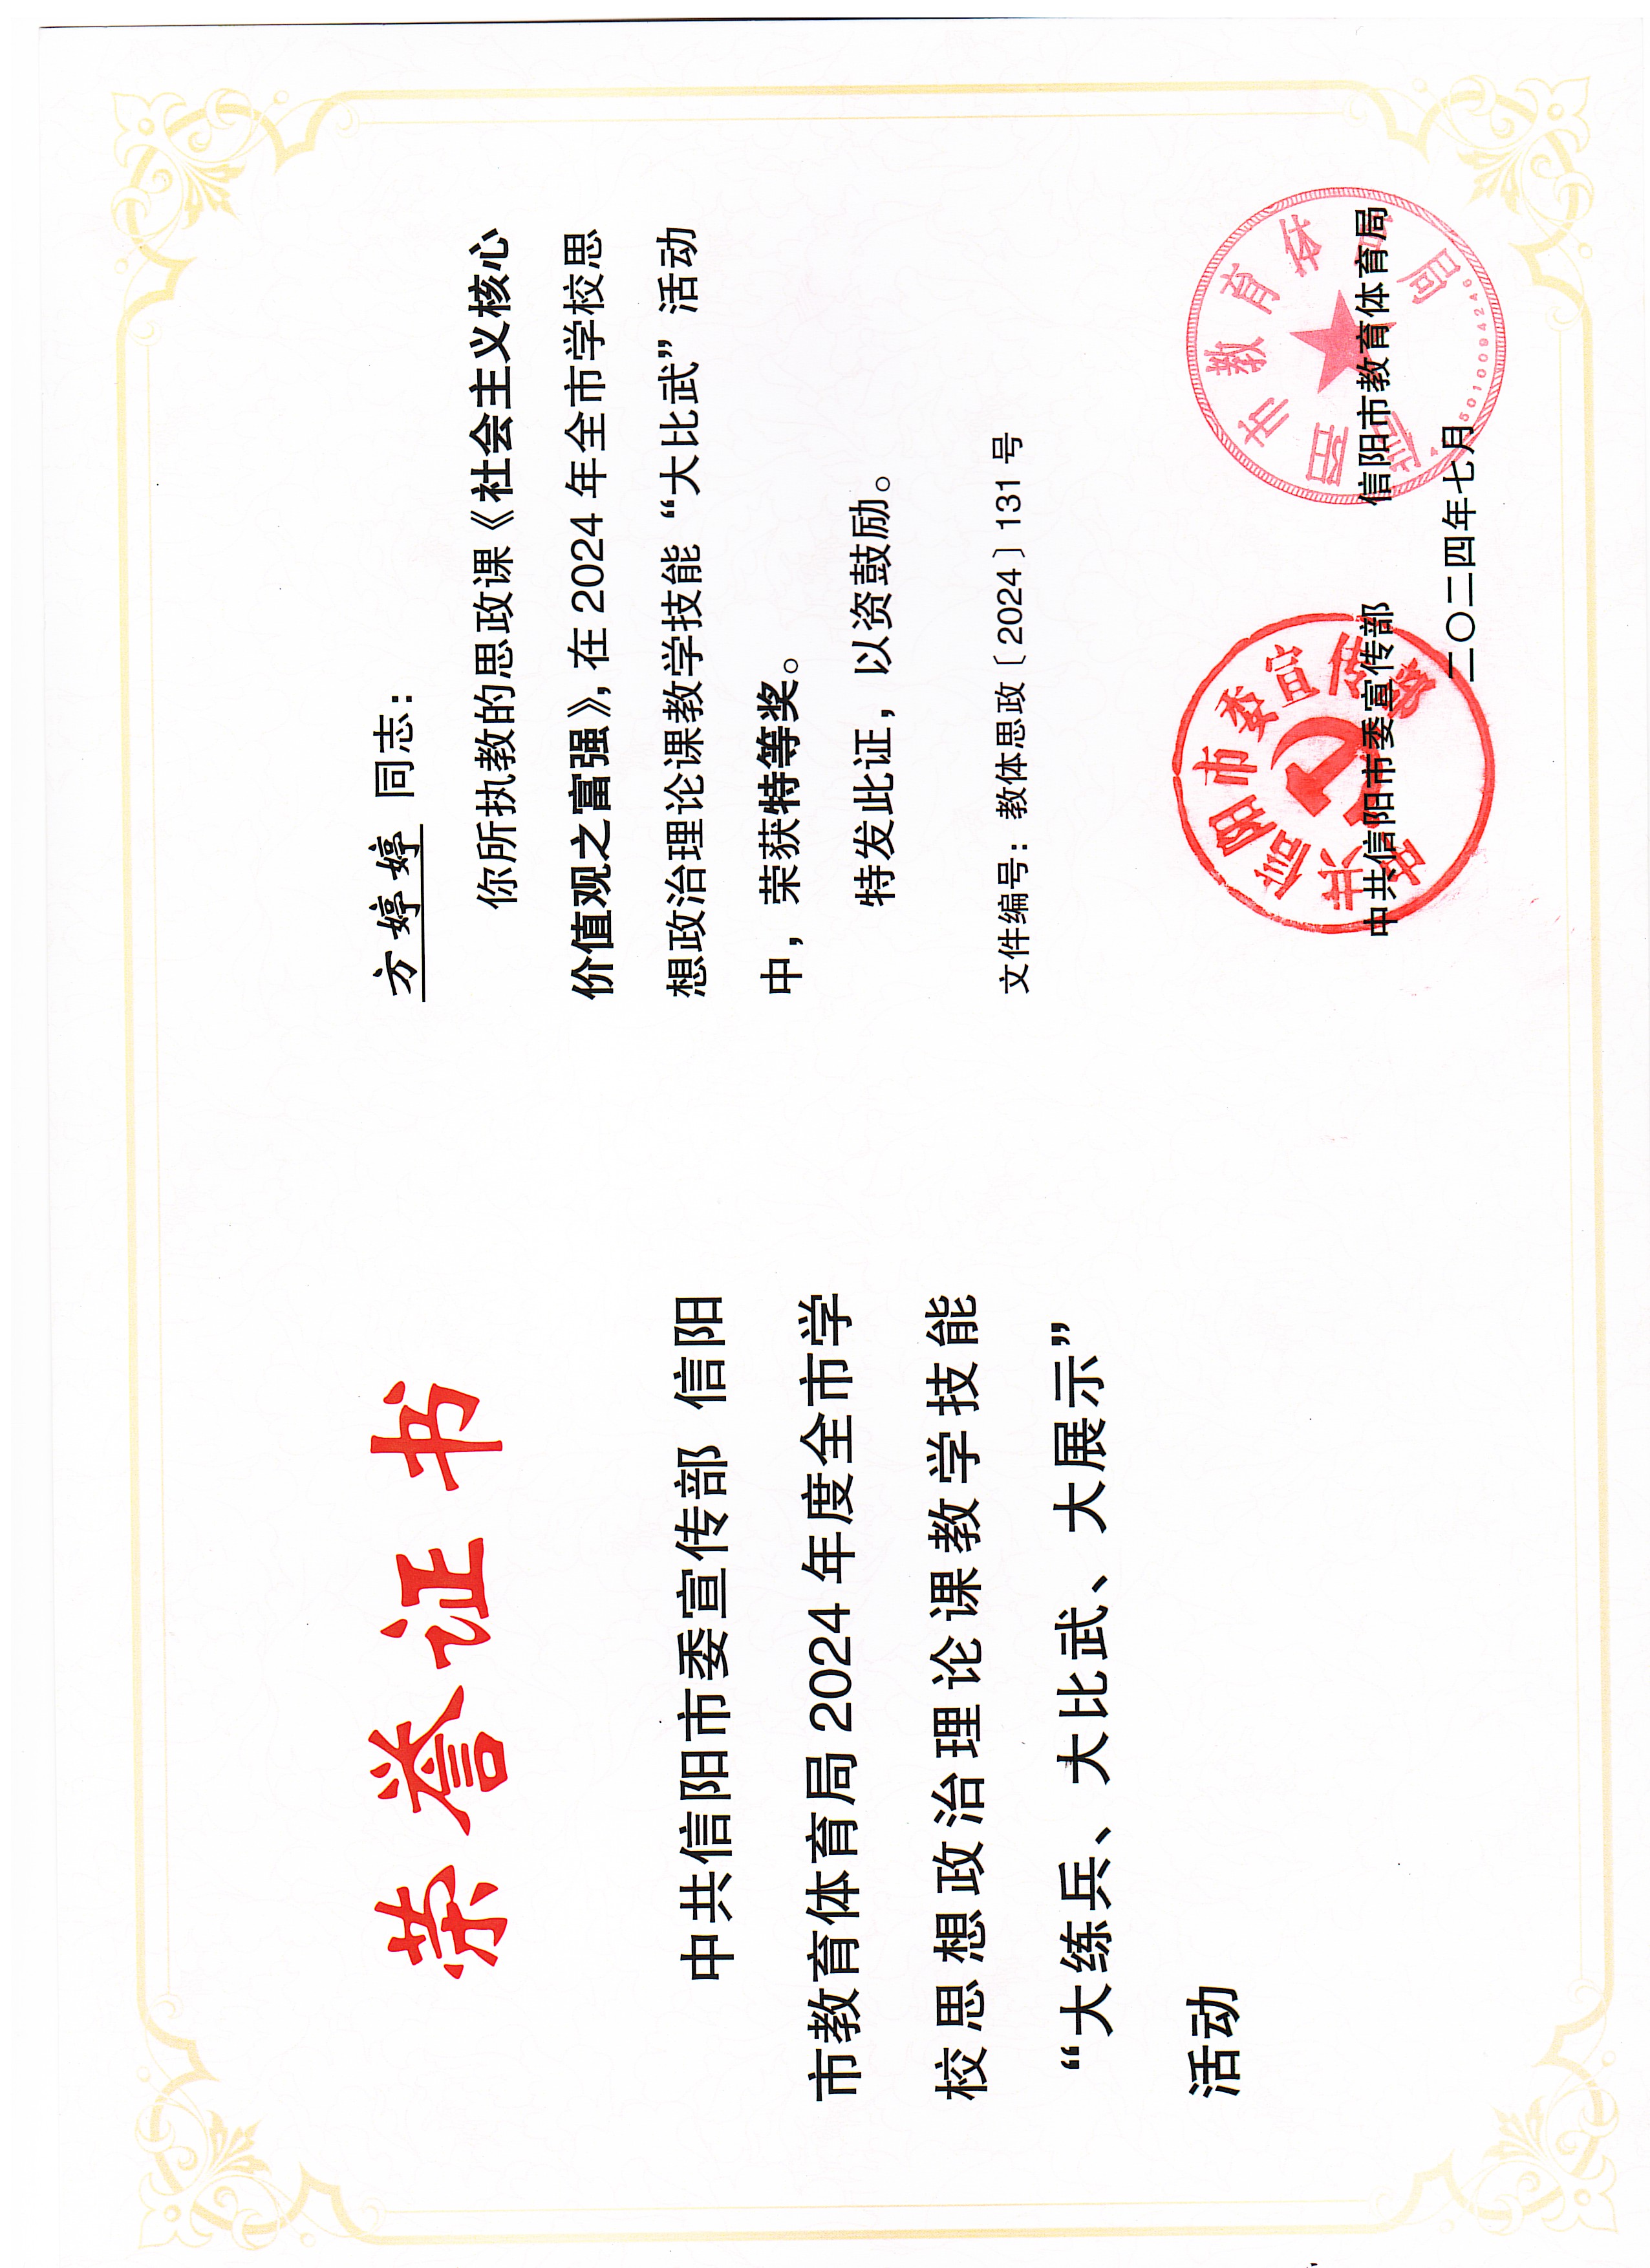 荣誉证书
中共信阳市委宣传部 信阳
市教育体育局 2024 年度全市学
校思想政治理论课教学技能
“大练兵、大比武、大展示”
活动
方婷婷 同志：
你所执教的思政课《社会主义核心
价值观之富强》，在 2024 年全市学校思
想政治理论课教学技能 “大比武” 活动
中，荣获特等奖。
特发此证，以资鼓励。
文件编号：教体思政〔2024〕131 号
中共信阳市委宣传部 信阳市教育体育局
二〇二四年七月
中共信阳市委宣传部
信阳市教育体育局